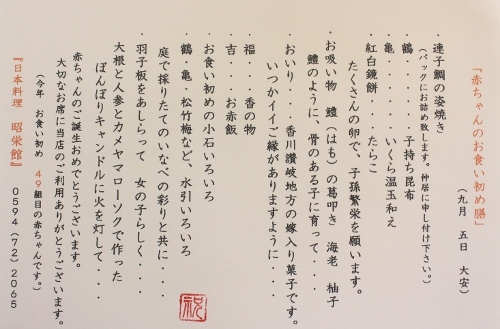 「赤ちゃんのお食い初め膳」
(九月 五日 大安)
・連子鯛の姿焼き
(パックにお詰め致します。仲居に申し付け下さい。)
・鶴・・・・・子持ち昆布
・亀・・・・・いくら温玉和え
・紅白鏡餅・・・たらこ
たくさんの卵で、子孫繁栄を願います。
・お吸い物 鱧(はも)の葛叩き 海老 柚子
鱧のように、骨のある子に育って・・・
・おいり・・・香川讃岐地方の嫁入り菓子です。
いつかイイご縁がありますように・・・
・福・・・香の物
・吉・・・お赤飯
・お食い初めの小石いろいろ
・鶴・亀・松竹梅など、水引いろいろ
庭で採りたてのいなべの彩りと共に・・・
・羽子板をあしらって 女の子らしく・・・
大根と人参とカメヤマローソクで作った
ぼんぼりキャンドルに火を灯して・・・
赤ちゃんのご誕生おめでとうございます。
大切なお席に当店のご利用ありがとうございます。
(今年 お食い初め 49組目の赤ちゃんです。)
『日本料理 昭栄館』 0594(72)2065
祝